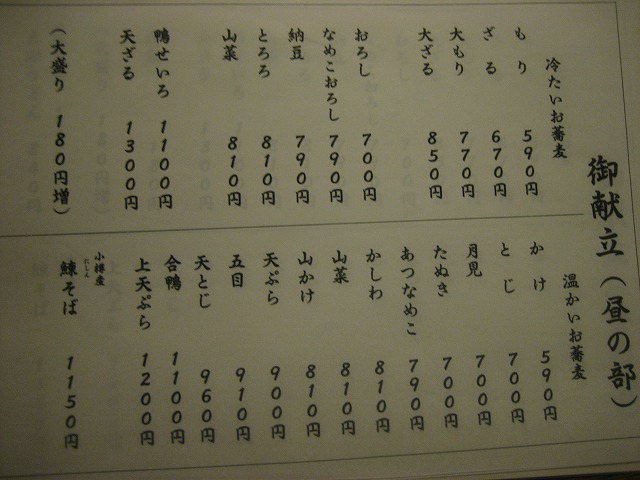 御献立（昼の部）
冷たいお蕎麦
もり 590円
ざる 670円
大もり 770円
大ざる 850円
おろし 700円
なめこおろし 790円
納豆 790円
とろろ 810円
山菜 810円
鴨せいろ 1100円
天ざる 1300円
（大盛り 180円増）
温かいお蕎麦
かけ 590円
とじ 700円
月見 700円
たぬき 700円
あつなめこ 790円
かしわ 810円
山菜 810円
山かけ 810円
天ぷら 900円
五目 910円
天とじ 960円
合鴨 1100円
上天ぷら 1200円
小樽産
鰊そば 1150円
にしん